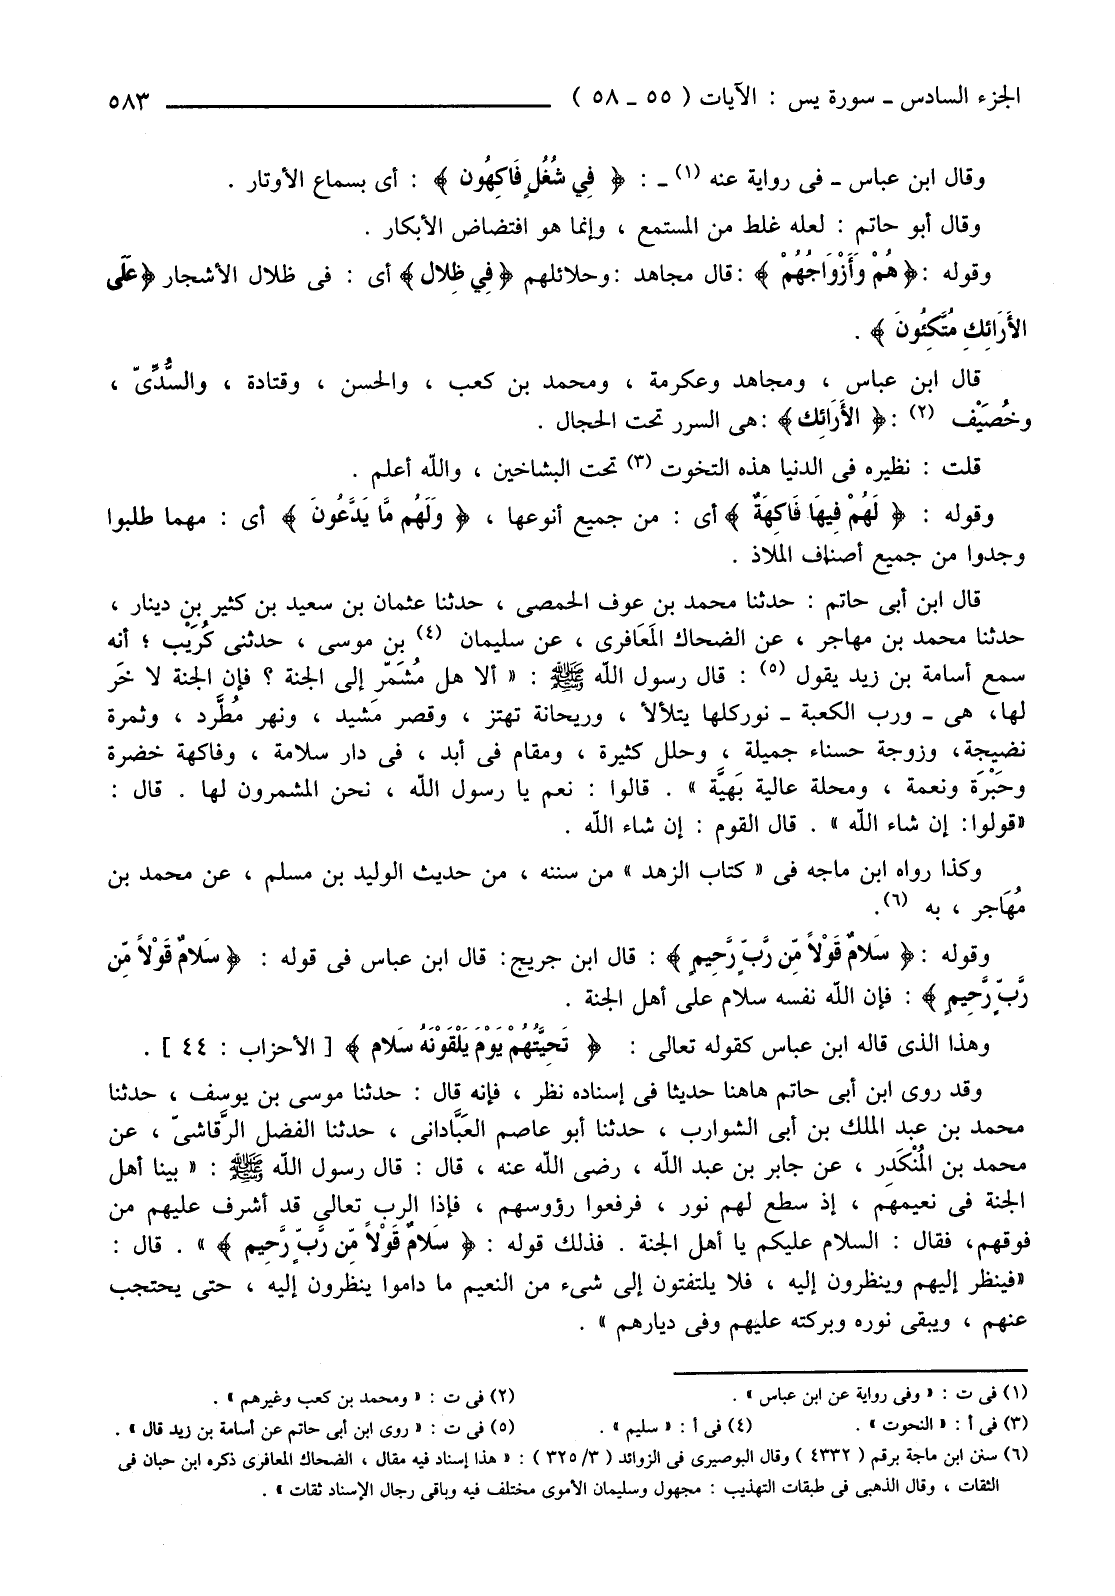 الجزء السادس ـ سورة يس : الآيات ( ٥٥ ـ ٥٨ ) ـــــــــ ٥٨٣
وقال ابن عباس ـ فى رواية عنه (١) ـ : ﴿ فِي شُغُلٍ فَاكِهُون ﴾ : أى بسماع الأوتار .
وقال أبو حاتم : لعله غلط من المستمع ، وإنما هو افتضاض الأبكار .
وقوله :﴿ هُمْ وَأَزْوَاجُهُمْ ﴾ :قال مجاهد :وحلائلهم ﴿فِي ظِلال﴾ أى : فى ظلال الأشجار ﴿عَلَى
الأَرَائِكِ مُتَّكِئُونَ ﴾ .
قال ابن عباس ، ومجاهد وعكرمة ، ومحمد بن كعب ، والحسن ، وقتادة ، والسُّدِّىّ ،
وخُصَيْف (٢) :﴿ الأَرَائِك﴾ :هى السرر تحت الحجال .
قلت : نظيره فى الدنيا هذه التخوت (٣) تحت البشاخين ، والله أعلم .
وقوله : ﴿ لَهُمْ فِيهَا فَاكِهَةٌ ﴾ أى : من جميع أنوعها ، ﴿ وَلَهُم مَّا يَدَّعُونَ ﴾ أى : مهما طلبوا
وجدوا من جميع أصناف الملاذ .
قال ابن أبى حاتم : حدثنا محمد بن عوف الحمصى ، حدثنا عثمان بن سعيد بن كثير بن دينار ،
حدثنا محمد بن مهاجر ، عن الضحاك المَعَافرى ، عن سليمان (٤) بن موسى ، حدثنى كُرَيْب ؛ أنه
سمع أسامة بن زيد يقول (٥) : قال رسول الله ﷺ : « ألا هل مُشَمّر إلى الجنة ؟ فإن الجنة لا خَر
لها، هى ـ ورب الكعبة ـ نوركلها يتلألأ ، وريحانة تهتز ، وقصر مَشيد ، ونهر مُطَّرد ، وثمرة
نضيجة، وزوجة حسناء جميلة ، وحلل كثيرة ، ومقام فى أبد ، فى دار سلامة ، وفاكهة خضرة
وحَبْرَة ونعمة ، ومحلة عالية بَهيَّة » . قالوا : نعم يا رسول الله ، نحن المشمرون لها . قال :
«قولوا: إن شاء الله » . قال القوم : إن شاء الله .
وكذا رواه ابن ماجه فى « كتاب الزهد » من سننه ، من حديث الوليد بن مسلم ، عن محمد بن
مُهَاجر ، به (٦).
وقوله :﴿ سَلامٌ قَوْلاً مِّن رَّبٍّ رَّحِيمٍ ﴾ : قال ابن جريج: قال ابن عباس فى قوله : ﴿ سَلامٌ قَوْلاً مِّن
رَّبٍّ رَّحِيمٍ ﴾ : فإن الله نفسه سلام على أهل الجنة .
وهذا الذى قاله ابن عباس كقوله تعالى : ﴿ تَحِيَّتُهُمْ يَوْمَ يَلْقَوْنَهُ سَلام ﴾ [ الأحزاب : ٤٤ ] .
وقد روى ابن أبى حاتم هاهنا حديثا فى إسناده نظر ، فإنه قال : حدثنا موسى بن يوسف ، حدثنا
محمد بن عبد الملك بن أبى الشوارب ، حدثنا أبو عاصم العَبَّادانى ، حدثنا الفضل الرَّقاشىّ ، عن
محمد بن المُنْكَدِر ، عن جابر بن عبد الله ، رضى الله عنه ، قال : قال رسول الله ﷺ : « بينا أهل
الجنة فى نعيمهم ، إذ سطع لهم نور ، فرفعوا رؤوسهم ، فإذا الرب تعالى قد أشرف عليهم من
فوقهم، فقال : السلام عليكم يا أهل الجنة . فذلك قوله : ﴿ سَلامٌ قَوْلاً مِّن رَّبٍّ رَّحِيم ﴾ » . قال :
«فينظر إليهم وينظرون إليه ، فلا يلتفتون إلى شىء من النعيم ما داموا ينظرون إليه ، حتى يحتجب
عنهم ، ويبقى نوره وبركته عليهم وفى ديارهم » .
(١) فى ت : « وفى رواية عن ابن عباس » . (٢) فى ت : « ومحمد بن كعب وغيرهم » .
(٣) فى أ : « النحوت » . (٤) فى أ : « سليم » . (٥) فى ت : « روى ابن أبى حاتم عن أسامة بن زيد قال » .
(٦) سنن ابن ماجة برقم ( ٤٣٣٢ ) وقال البوصيرى فى الزوائد ( ٣/ ٣٢٥ ) : « هذا إسناد فيه مقال ، الضحاك المعافرى ذكره ابن حبان فى
الثقات ، وقال الذهبى فى طبقات التهذيب : مجهول وسليمان الأموى مختلف فيه وباقى رجال الإسناد ثقات » .